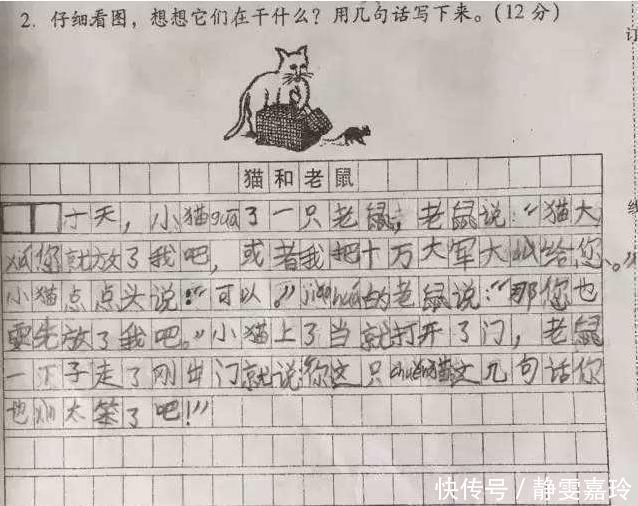 2. 仔细看图，想想它们在干什么？用几句话写下来。（12 分）
订
猫和老鼠
十天，小猫zua了一只老鼠，老鼠说：“猫大
您就放了我吧，或者我把十万大军大给您、。”
小猫点点头说：“可以。”jiaohua的老鼠说：“那您也
要先放了我吧。”小猫上了当就打开了门，老鼠
一下子走了刚出门就说你这只猫这几句话你
也太笨了吧！”
线
快传号／静雯嘉玲